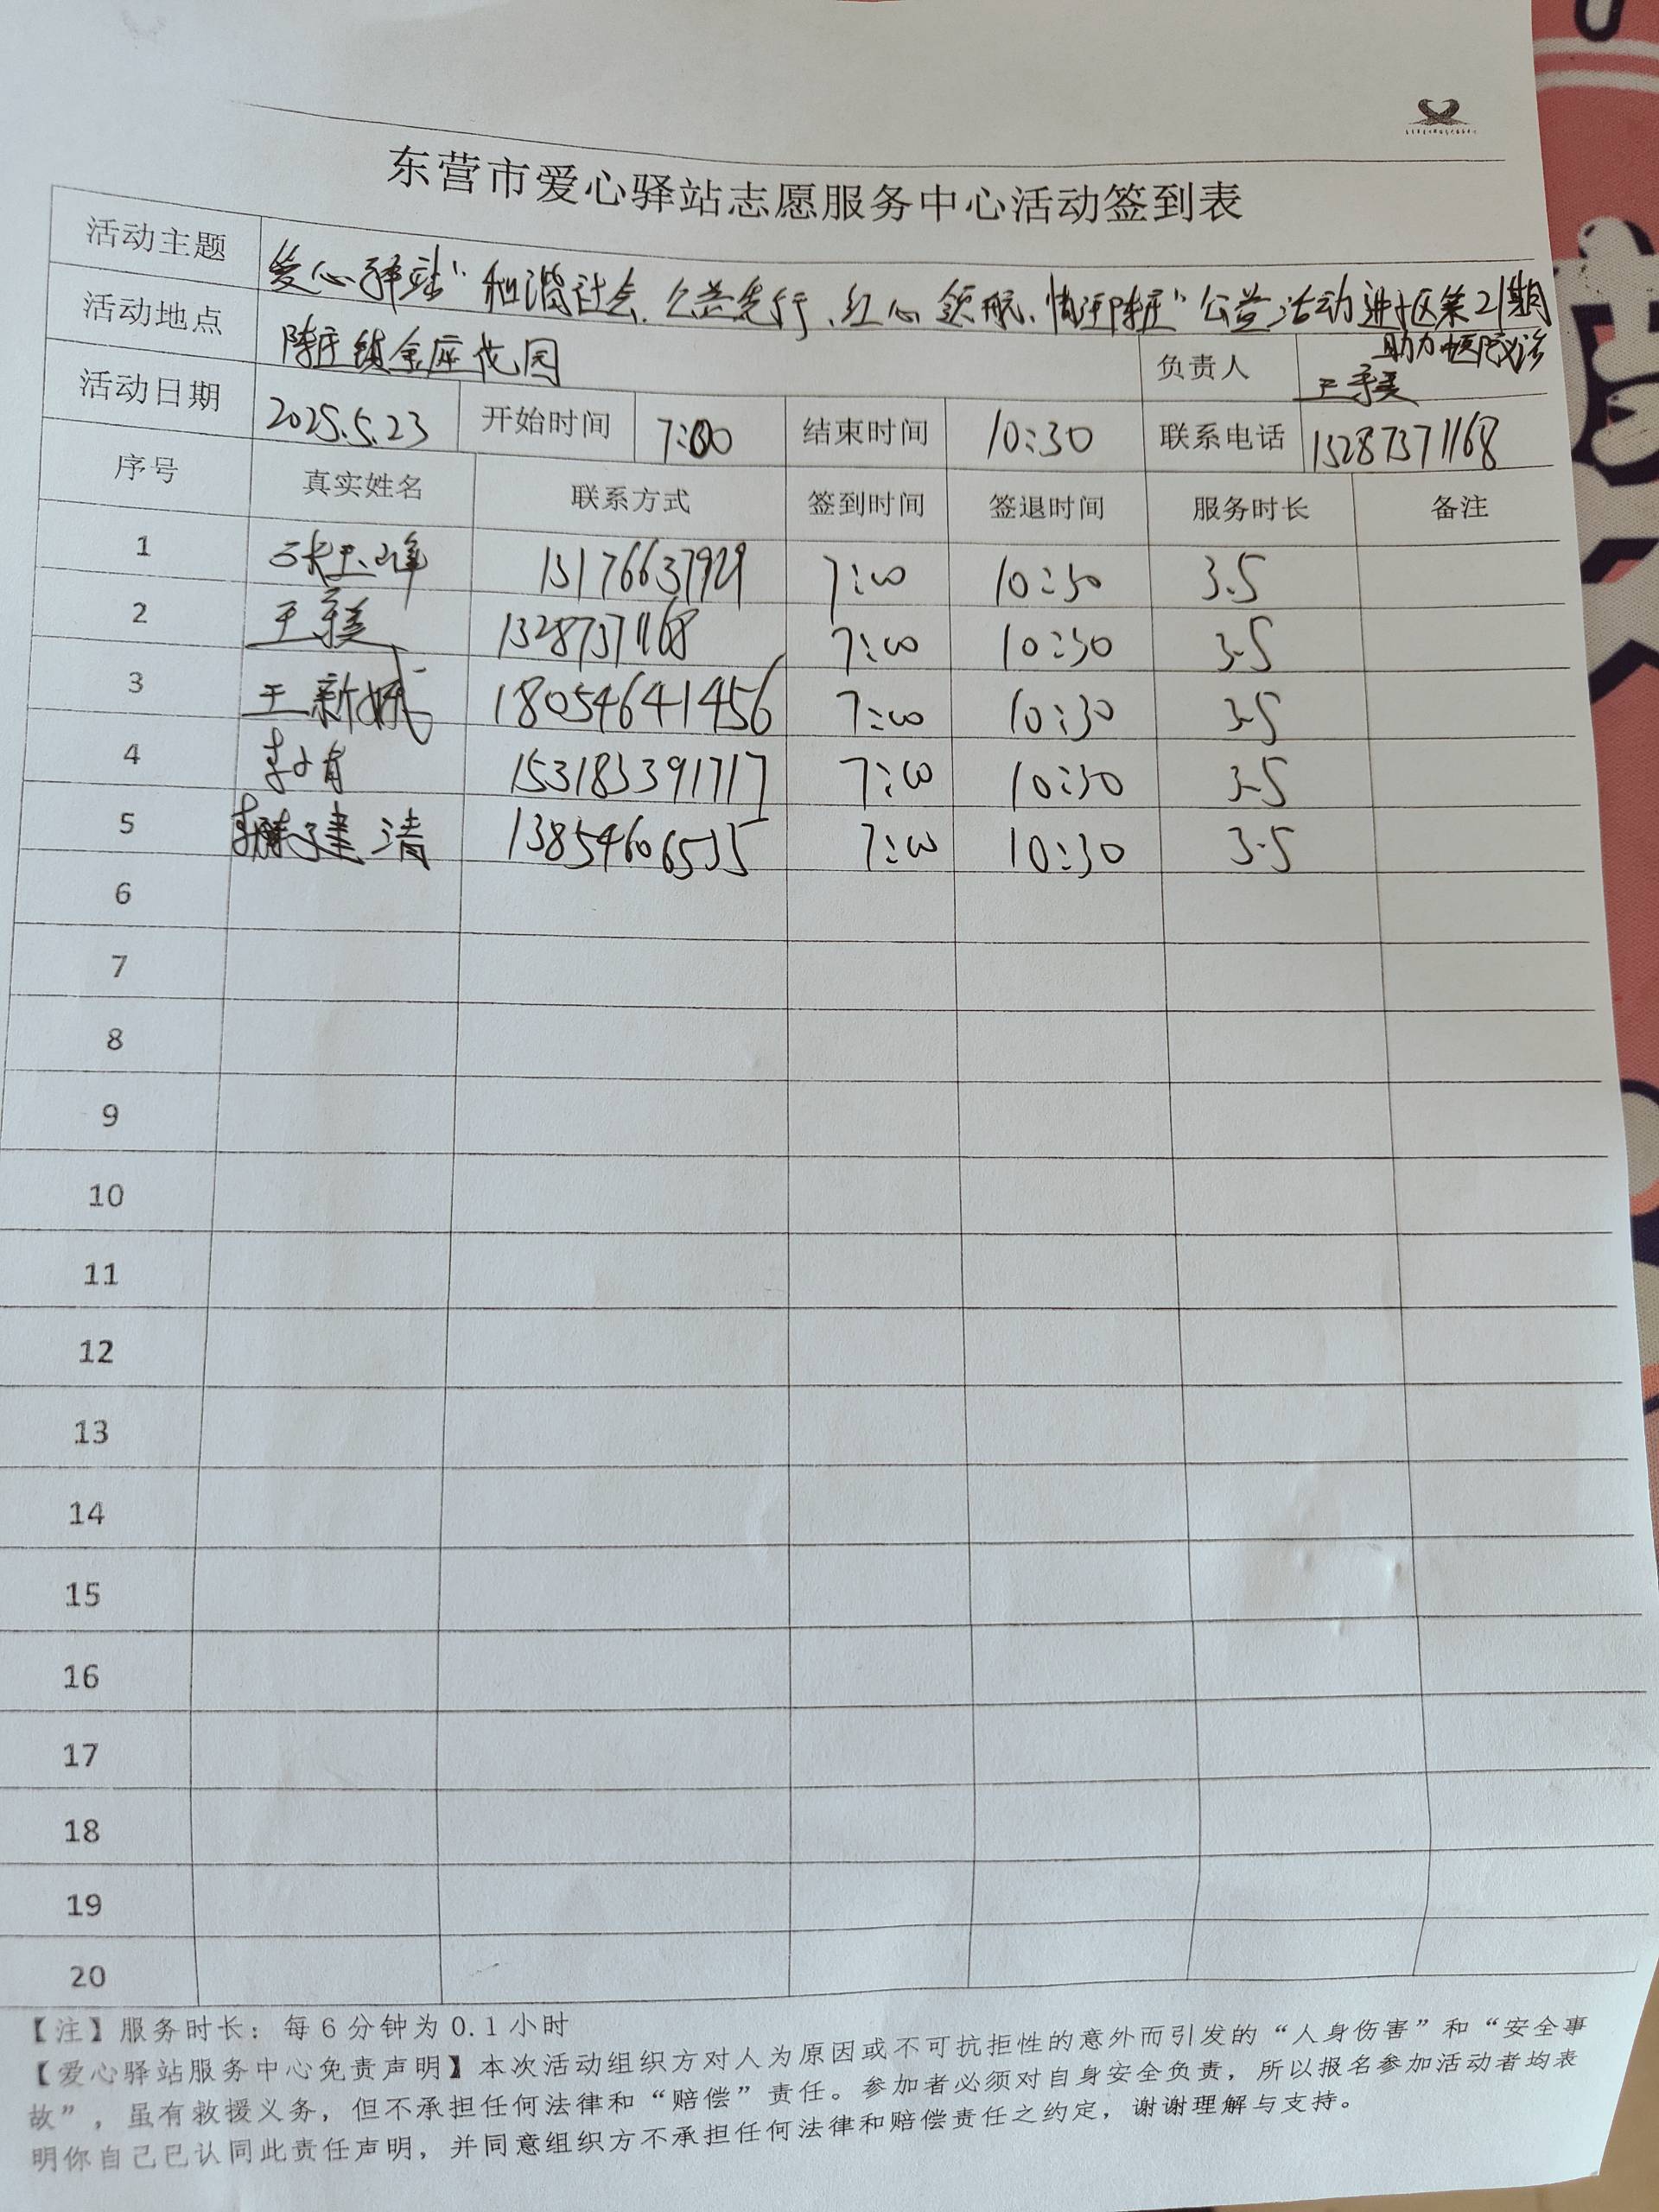 东营市爱心驿站志愿服务中心活动签到表
活动主题 爱心驿站"和谐社会、公益先行、红心领航、情洒陈庄"公益活动进社区第21期
助力中医院义诊
活动地点 陈庄镇金座花园 负责人 王秀美
活动日期 2025.5.23 开始时间 7:00 结束时间 10:30 联系电话 13287371168
序号 真实姓名 联系方式 签到时间 签退时间 服务时长 备注
1 13176637929 7:00 10:30 3.5
2 王秀美 13287371168 7:00 10:30 3.5
3 王新娥 18054641456 7:00 10:30 3.5
4 153183391717 7:00 10:30 3.5
5 建清 13854606535 7:00 10:30 3.5
6
7
8
9
10
11
12
13
14
15
16
17
18
19
20
【注】服务时长：每6分钟为0.1小时
【爱心驿站服务中心免责声明】本次活动组织方对人为原因或不可抗拒性的意外而引发的“人身伤害”和“安全事
故”，虽有救援义务，但不承担任何法律和“赔偿”责任。参加者必须对自身安全负责，所以报名参加活动者均表
明你自己已认同此责任声明，并同意组织方不承担任何法律和赔偿责任之约定，谢谢理解与支持。